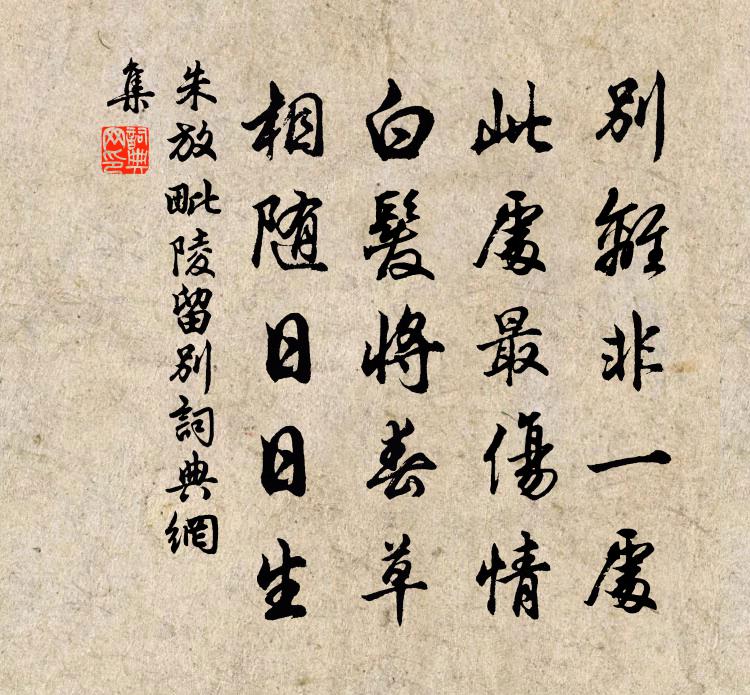 別離非一處
此處最傷情
白髮將春草
相隨日日生
朱放毗陵留別詞典網
集
詞典網印